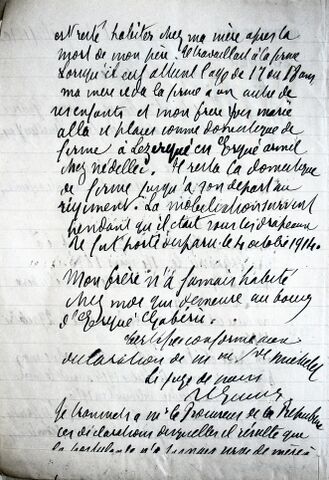 est resté habiter chez ma mère après la
mort de mon père. Il travaillait à la ferme
Lorsqu'il eut atteint l'age de 17 ou 18 ans,
ma mère céda la ferme à un autre de
ses enfants et mon frère Yves Marie
alla se placer comme domestique de
ferme à Lezergué en Ergué armel
chez Nédellec. Il resta là domestique
de ferme jusqu'à son départ au
régiment. La mobilisation survint
pendant qu'il était sous les drapeaux
Il fut porté disparu le 4 octobre 1914.
Mon frère n'a jamais habité
chez moi qui demeure au bourg
d'Ergué Gabéric.
Certifié conforme aux
déclaration de M
Le juge de paix
Je transmets à Mr le Procureur de la République
ces déclarations desquelles il résulte que
n'a jamais